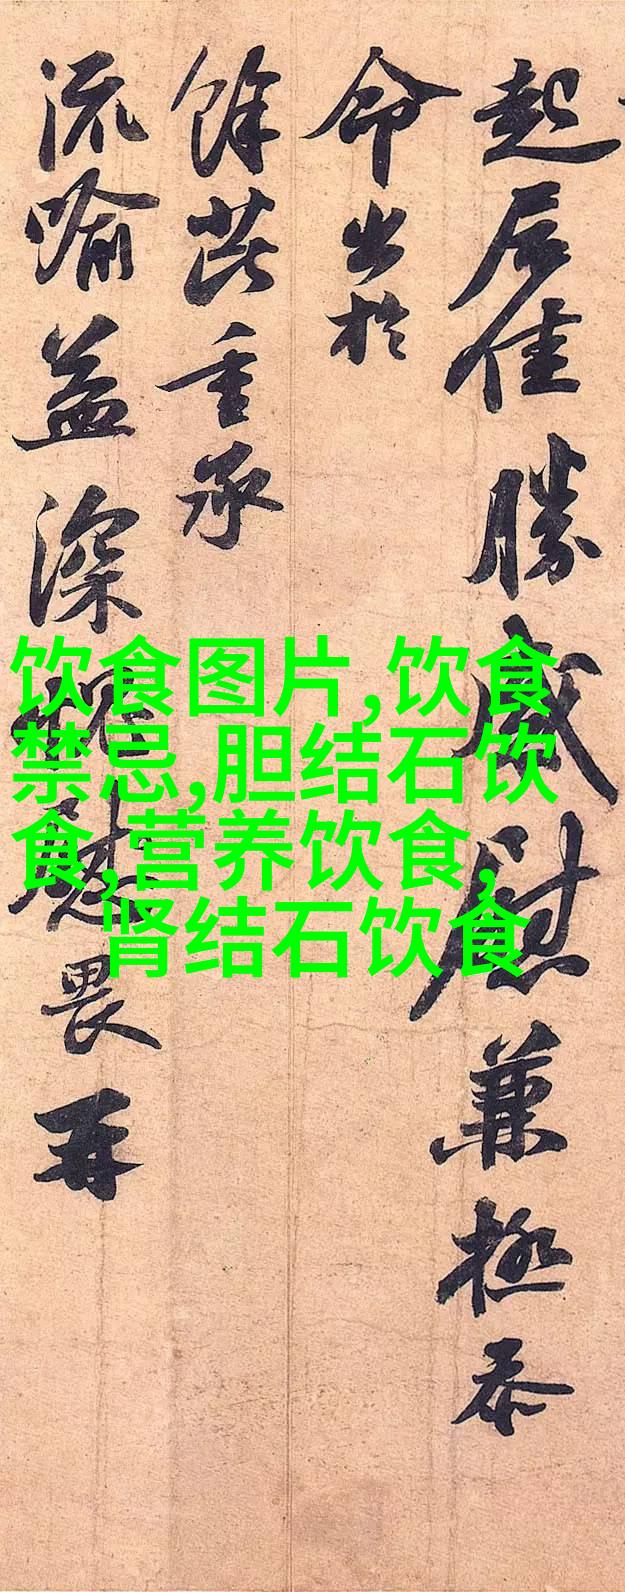 起居佳勝感慰兼極忝
命出於
餘芘重承
流喻益深愧慰畏再
饮食图片,饮食
禁忌,胆结石饮
食,营养饮食,
肾结石饮食